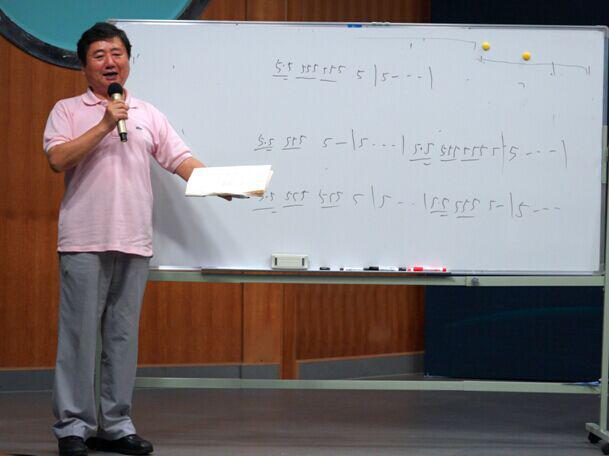 5·5 555 555 5 | 5 - - - |
5·5 555 5 - | 5 - - - | 5·5 555 555 5 | 5 - - - |
5·5 555 555 5 | 5 - - - | 5·5 555 5 - | 5 - - -